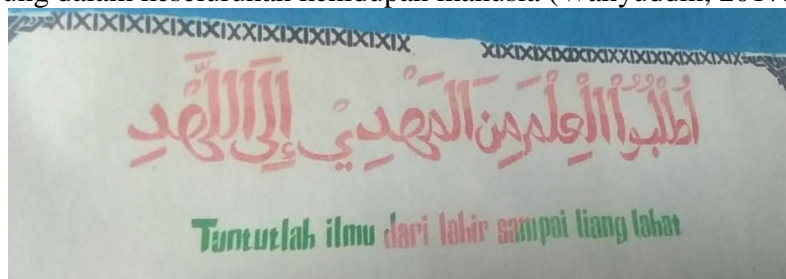 dalam keseluruhan kehidupan manusia (Wahyuddin, 2017
اُطْلُبُوْا الْعِلْمَ مِنَ الْمَهْدِيْ إِلَى اللَّهْدِ
Tuntutlah ilmu dari lahir sampai liang lahat